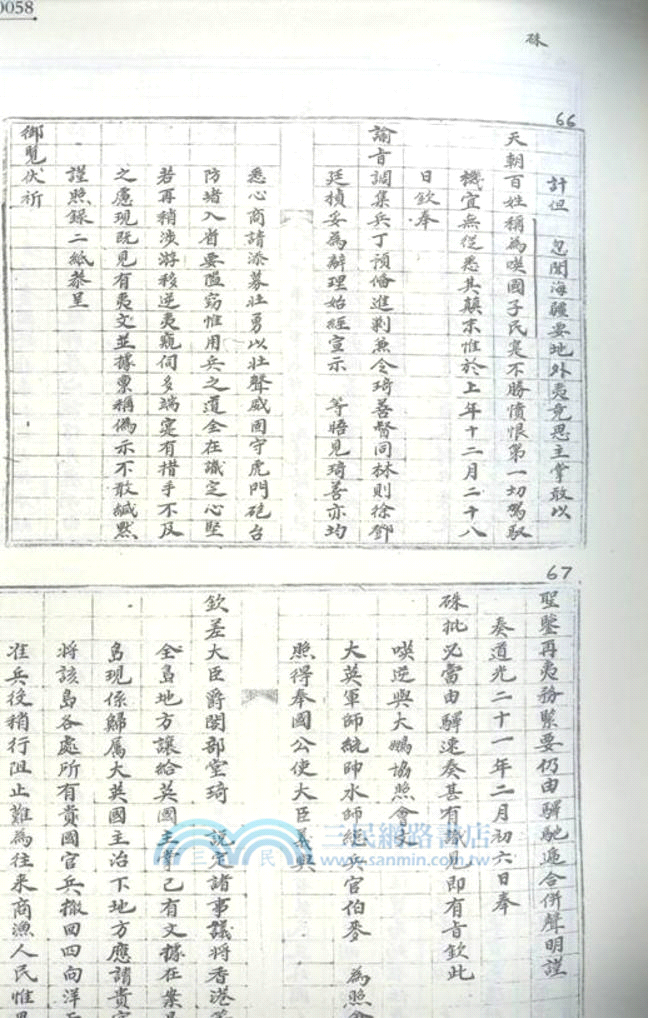 0058
硃
66
計但 忽聞海疆要地外夷竟思主掌敢以
天朝百姓稱為嘆國子民寔不勝憤恨第一切駕馭
機宜無從悉其顛末惟於上年十二月二十八
日欽奉
諭旨調集兵丁預備進剿兼令琦善督同林則徐鄧
廷楨妥為辦理始經宣示 等晤見琦善亦均
悉心商請添募壯勇以壯聲威固守虎門砲台
防堵入省要隘窃惟用兵之道全在識定心堅
若再稍涉游移逆夷窺伺多端寔有措手不及
之慮現既見有夷文並據稟稱偽示不敢緘默
謹照錄二紙恭呈
御覽伏祈
67
聖鑒再夷務緊要仍由驛馳遞合併聲明謹
奏道光二十一年二月初六日奉
硃批必當由驛速奏甚有識見即有旨欽此
嘆逆與大鵬協照會文
大英軍師統帥水師總兵官伯麥 為照會
照得奉國公使大臣義與
欽差大臣爵閣部堂琦 說定諸事議將香港等
全島地方讓給英國主掌已有文據在案是
島現係歸屬大英國主治下地方應請貴官
將該島各處所有貴國官兵撤回四向洋面
准兵役稍行阻止難為往來商漁人民惟思
三民網路書店
www.sanmin.com.tw
三 民